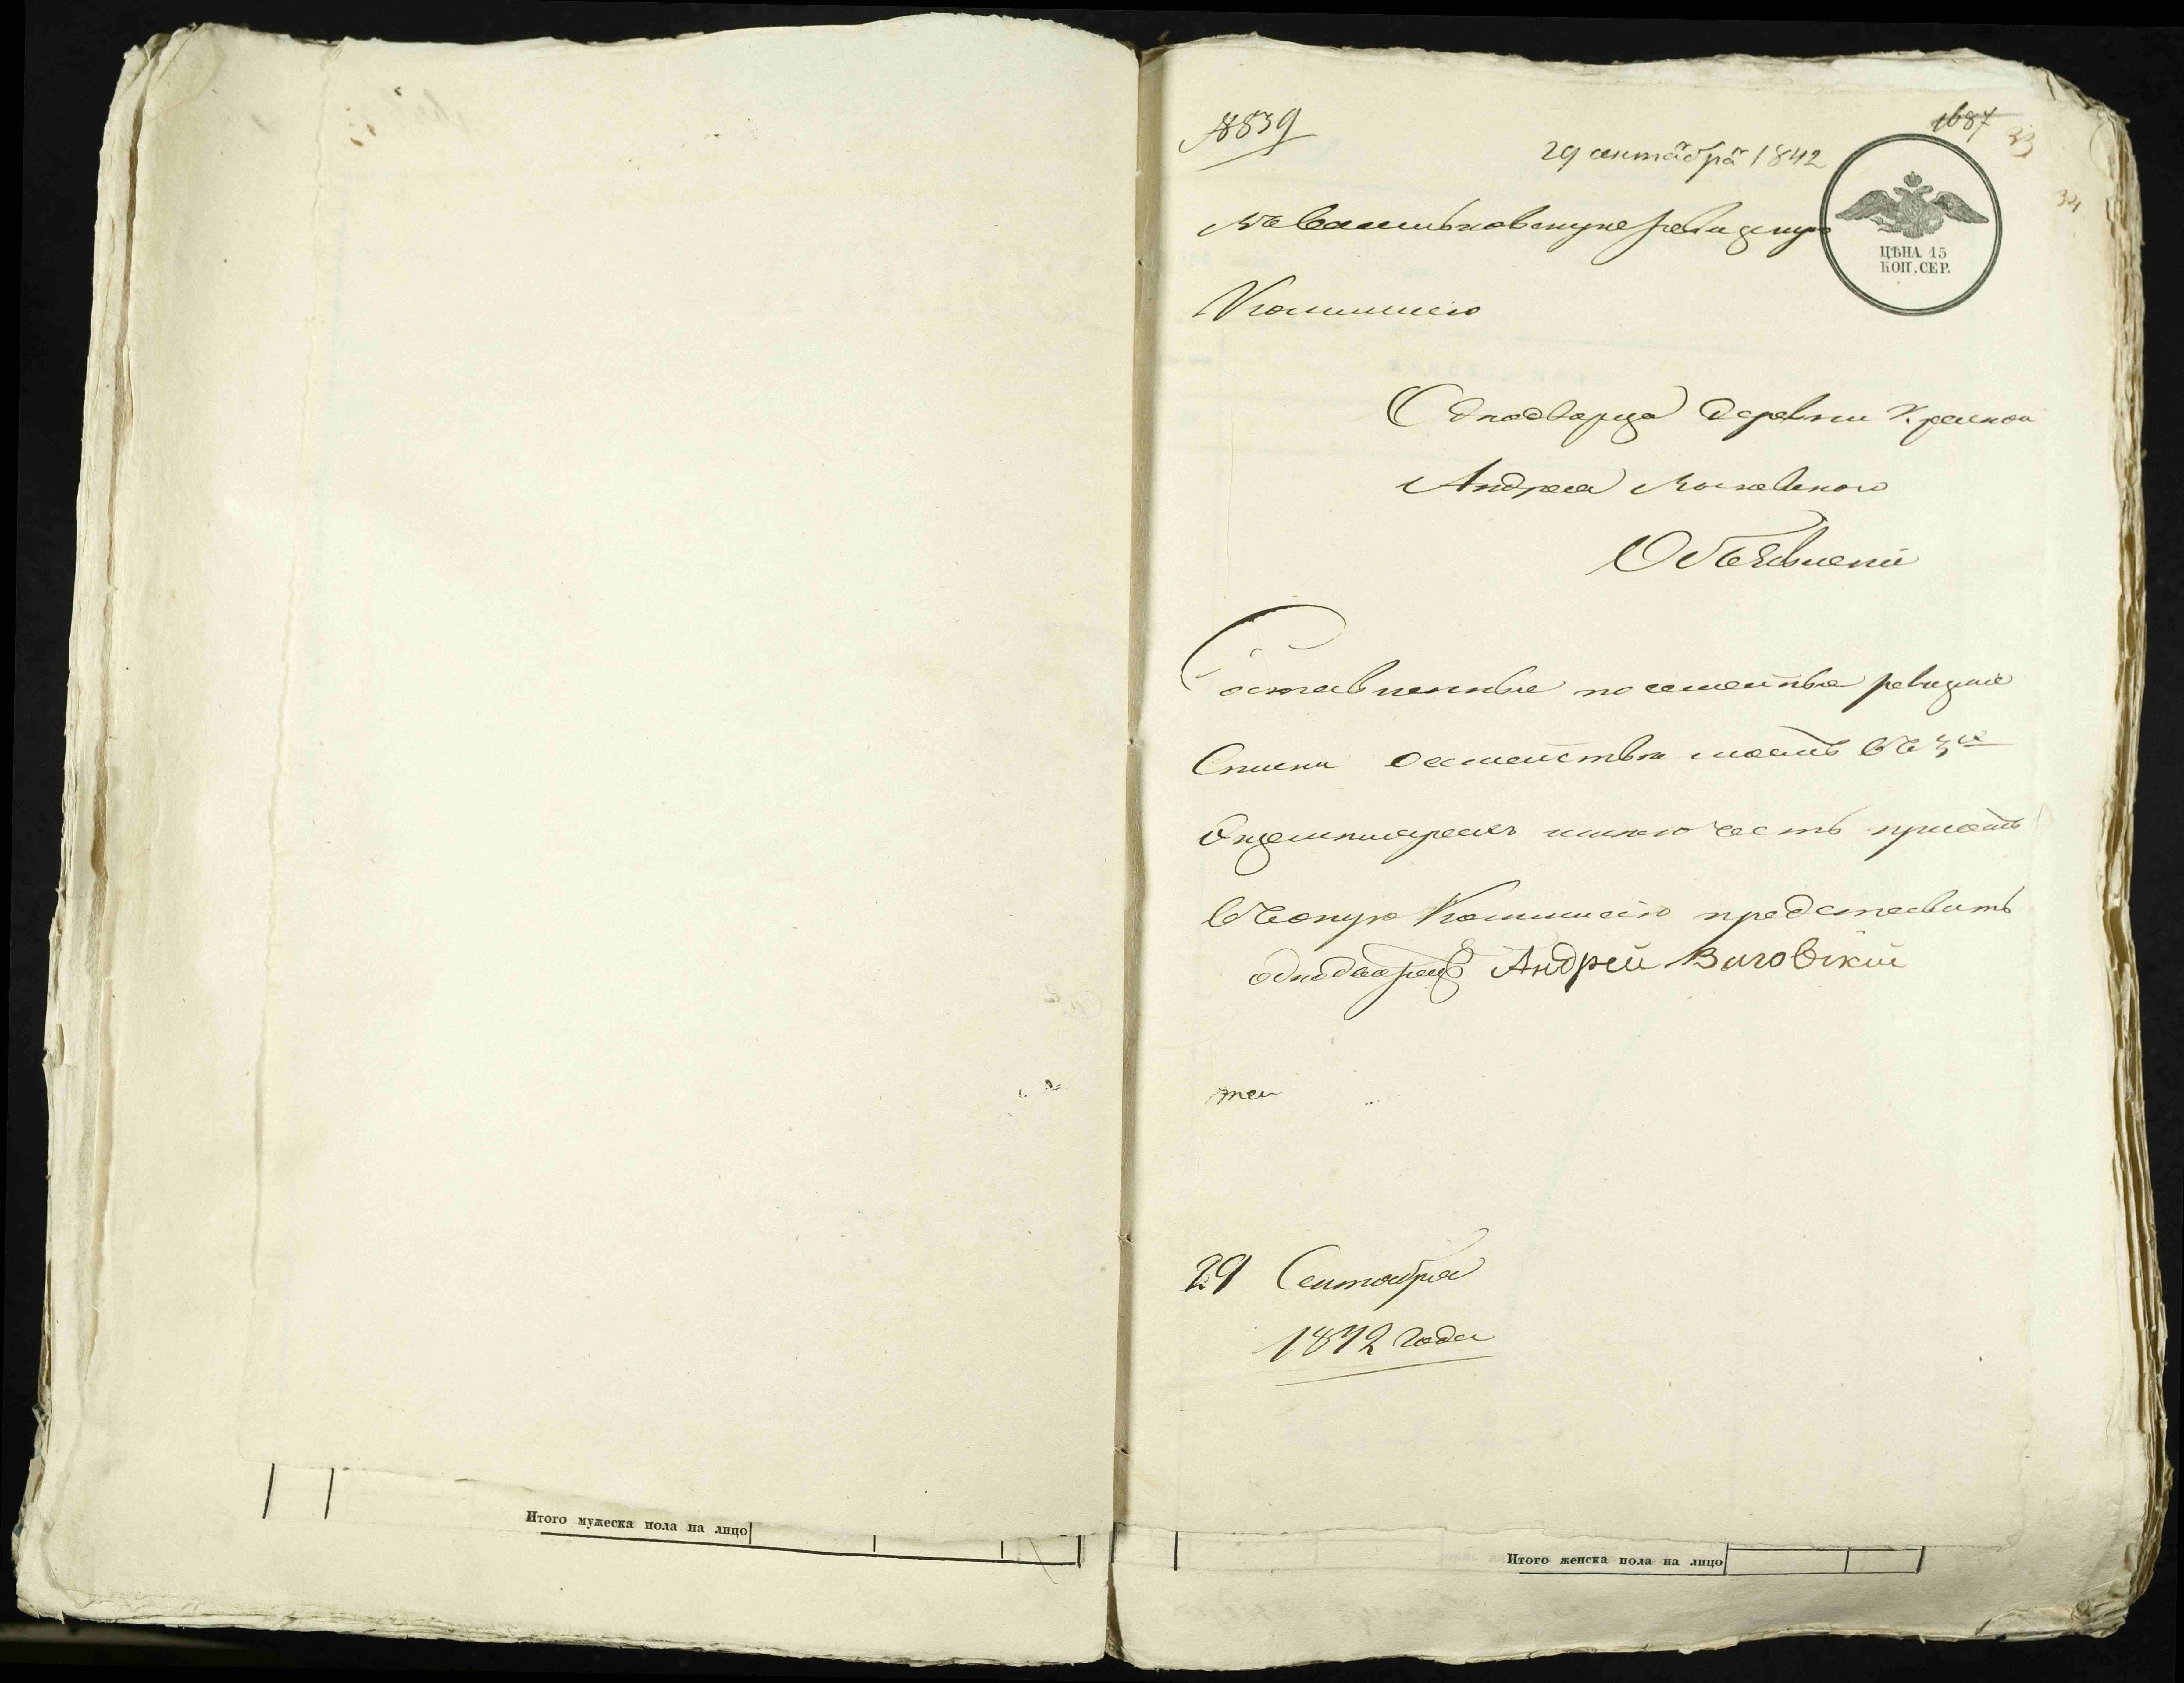 8839
1687
33
29 сентября 1842
34
Въ Васильковскую ревизскую
ЦѢНА 15
КОП. СЕР.
Коммисію
Однодворца Деревни
Андрея
Объявленіе
Составленные посемейные ревизкіе
Списки о семействѣ моемъ въ 3хъ
Экземплярахъ имѣю честь при семъ
въ оную Коммисію представить
однодворецъ Андрей Виговскій
29 Сентября
1842 года
Итого мужеска пола на лицо
Итого женска пола на лицо